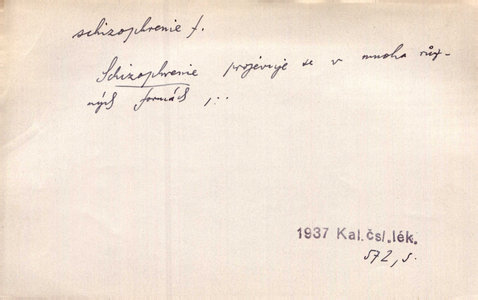 schizophrenie f.
Schizophrenie projevuje se v mnoha růz-
ných formách ,..
1937 Kal. čsl. lék.
572, s.